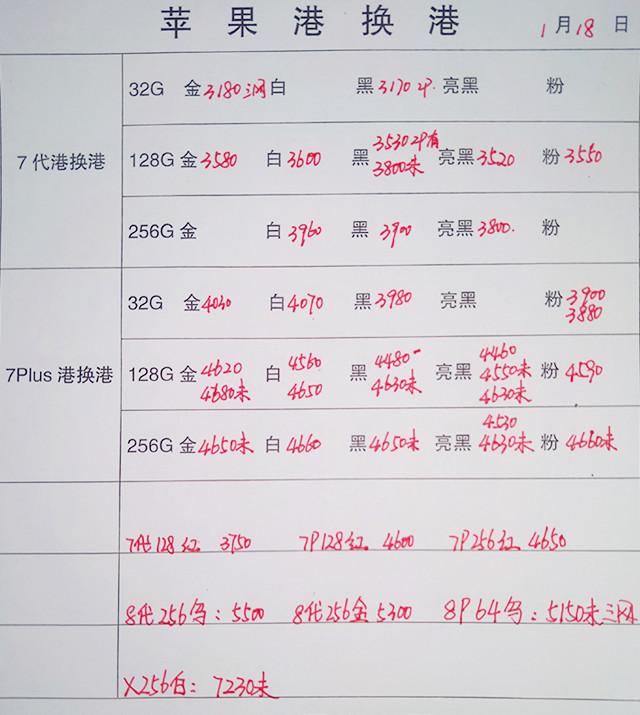 苹果港换港 1月18日
32G 金3180三网 白 黑3170 亮黑 粉
3530 有
7代港换港 128G 金3580 白3600 黑 亮黑3520 粉3550
3800未
256G 金 白3960 黑3900 亮黑3800. 粉
32G 金4030 白4070 黑3980 亮黑 粉3900
3880
4620 4560 4480 4460
7Plus港换港 128G 金 白 黑 亮黑4550未 粉4590
4680未 4650 4630未 4630未
4530
256G 金4650未 白4660 黑4650未 亮黑4630未 粉4660未
7代128红 3750 7P128红 4600 7P256红 4650
8代256 : 5500 8代256金 5300 8P64 : 5150未三网
X256白: 7230未